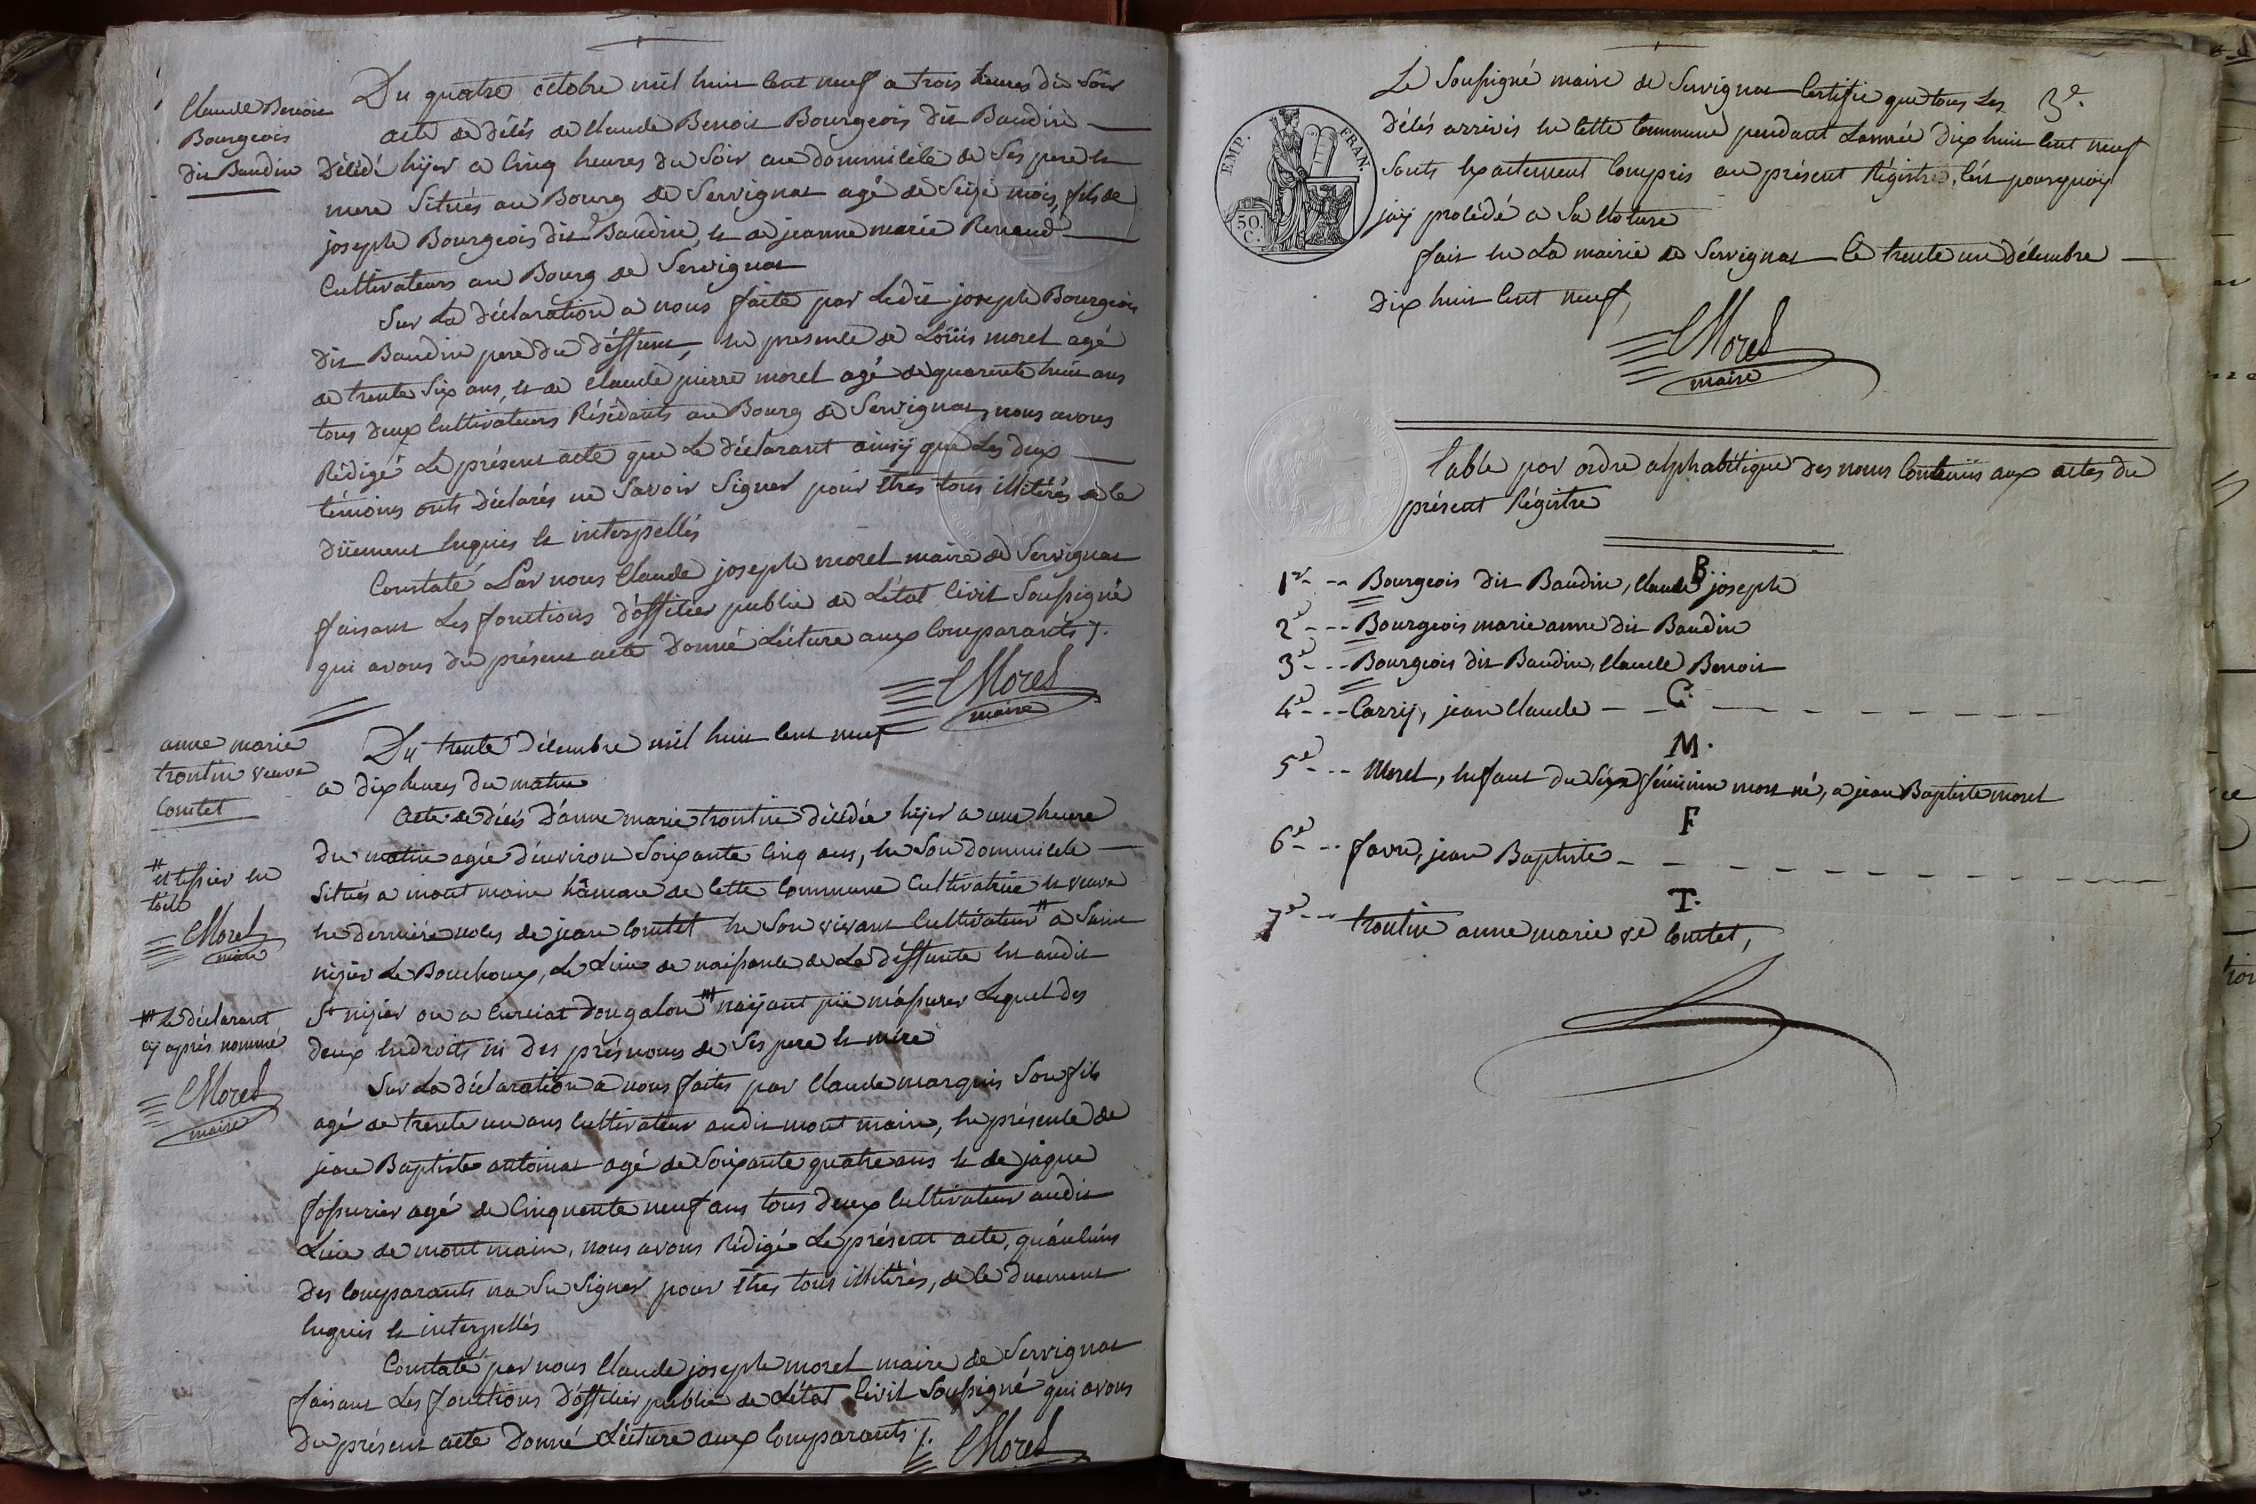 Claude Benoit
Bourgeois
dit Baudin
Du quatre octobre mil huit cent neuf a trois heures du soir
acte de décés de Claude Benoit Bourgeois dit Baudin
Décédé hijer a cinq heures du soir au dommicile de ses pere et
mere situés au Bourg de Servignat agé de seize mois, fils de
joseph Bourgeois dit Baudin, et de jeanne marie Renaud
Cultivateurs au Bourg de Servignat
Sur La déclaration a nous faite par Ledit joseph Bourgeois
dit Baudin pere du déffunt, en presence de Loüis morel agé
de trente six ans, et de Claude pierre morel agé de quarente huit ans
tous deux Cultivateurs Résidants au Bourg de Servignat, nous avons
Rédigé Le présent acte que Le déclarant ainsÿ que Les deux
témoins onts déclarés ne savoir signer pour êtres tous illitérés de ce
düement enquis et interpellés
Constaté Par nous Claude joseph morel maire de Servignat
faisant Les fonctions d'officier public de L'état Civil Soussigné
qui avons du présent acte donné Lécture aux Comparants ./.
CMorel
maire
anne marie
trontin veuve
Comtet
Du trente décembre mil huit cent neuf
a dix heures du matin
Acte de décés d'anne marie trontin décédée hijer a une heure
du matin agée d'environ soixante cinq ans, en son dommicile
situés a mont main hâmaue de cette Commune Cultivatrice et veuve
en derniere noces de jean Comtet en son vivant Cultivateur # a saint
nizier Le Bouchoux, Le Lieu de naissance de La déffunte est audit
St nizier ou a Curciat dongalon ### naÿant pü m'assurer Lequel des
deux endroits ni des présnoms de ses pere et mere
# et tissier en
toile
CMorel
maire
### le déclarant
cy aprés nommé
CMorel
maire
Sur La déclaration a nous faites par Claude marquis son fils
agé de trente un ans Cultivateur audit mont main, en présence de
jean Baptiste antoinat agé de soixante quatre ans et de jaque
fossurier agé de Cinquente neuf ans tous deux Cultivateur audit
Lieu de mont main, nous avons Rédigé Le présent acte, qu'aucüns
des Comparants na su signer pour êtres tous illitérés, de ce duement
enquis et interpellés
Constaté par nous Claude joseph morel maire de Servignat
faisant Les fonctions d'officier public de L'état Civil Soussigné qui avons
du présent acte donné Lécture aux Comparants ./.
CMorel
3e.
Le Soussigné maire de Servignat Certifie que tous Les
décés arrivés en cette Commune pendant L'année dix huit cent neuf
sonts exactement Compris au présent Régistre, c'est pourquoy
jaÿ procédé a sa cloture
fait en La mairie de Servignat Le trente un décembre
dix huit cent neuf,
EMP. FRAN.
50.
C.
CMorel
maire
table par ordre alphabétique des noms Contenüs aux actes du
présent Régistre
B
1er --- Bourgeois dit Baudin, Claude joseph
2e --- Bourgeois marie anne dit Baudin
3e --- Bourgeois dit Baudin, Claude Benoit
C.
4e --- Carrÿ, jean Claude
M.
5e --- Morel, enfant du séxe féminin mort né, a jean Baptiste morel
F
6e --- favre, jean Baptiste
T.
7e --- trontin anne marie ve Comtet,